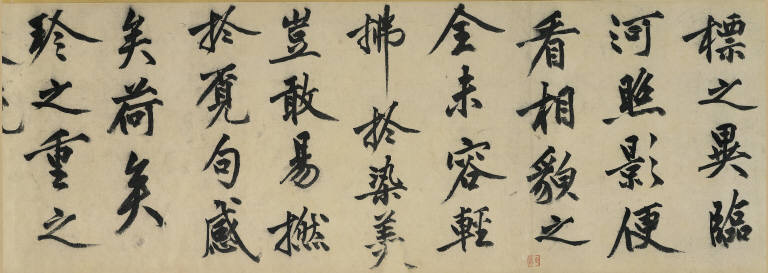 標之異臨
河照影便
看相貌之
全未容輕
拂於染羹
豈敢易撚
於覓句感
矣荷矣
珍之重之